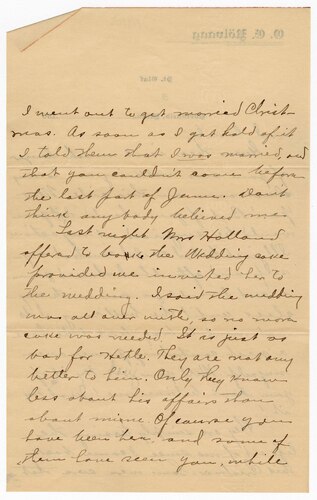 I went out to get married Christ
mas. As soon as I got hold of it
I told them that I was married, and
that you couldn't come before
the last part of June. Don't
think any body believed me.
Last night Mrs Holland
offered to bake the Wedding cake
provided we invited her to
the wedding. I said the wedding
was all over with, so no more
cake was needed. It is just as
bad for Hetle. They are not any
better to him. Only they know
less about his affairs than
about mine. Of course you
have been here, and some of
them have seen you, while